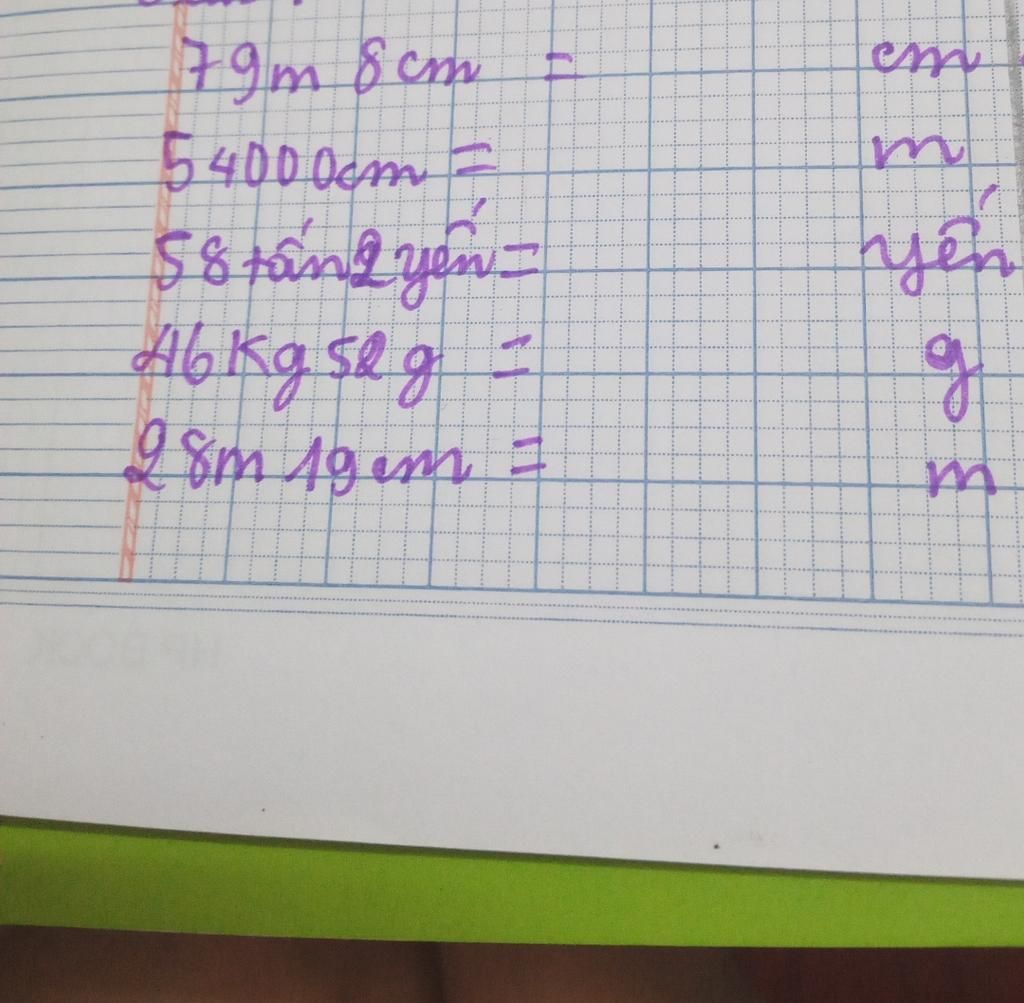 79m 8cm = cm
54000cm = m
58 tấn 2 yến = yến
46 Kg 52g = g
28m 19cm = m